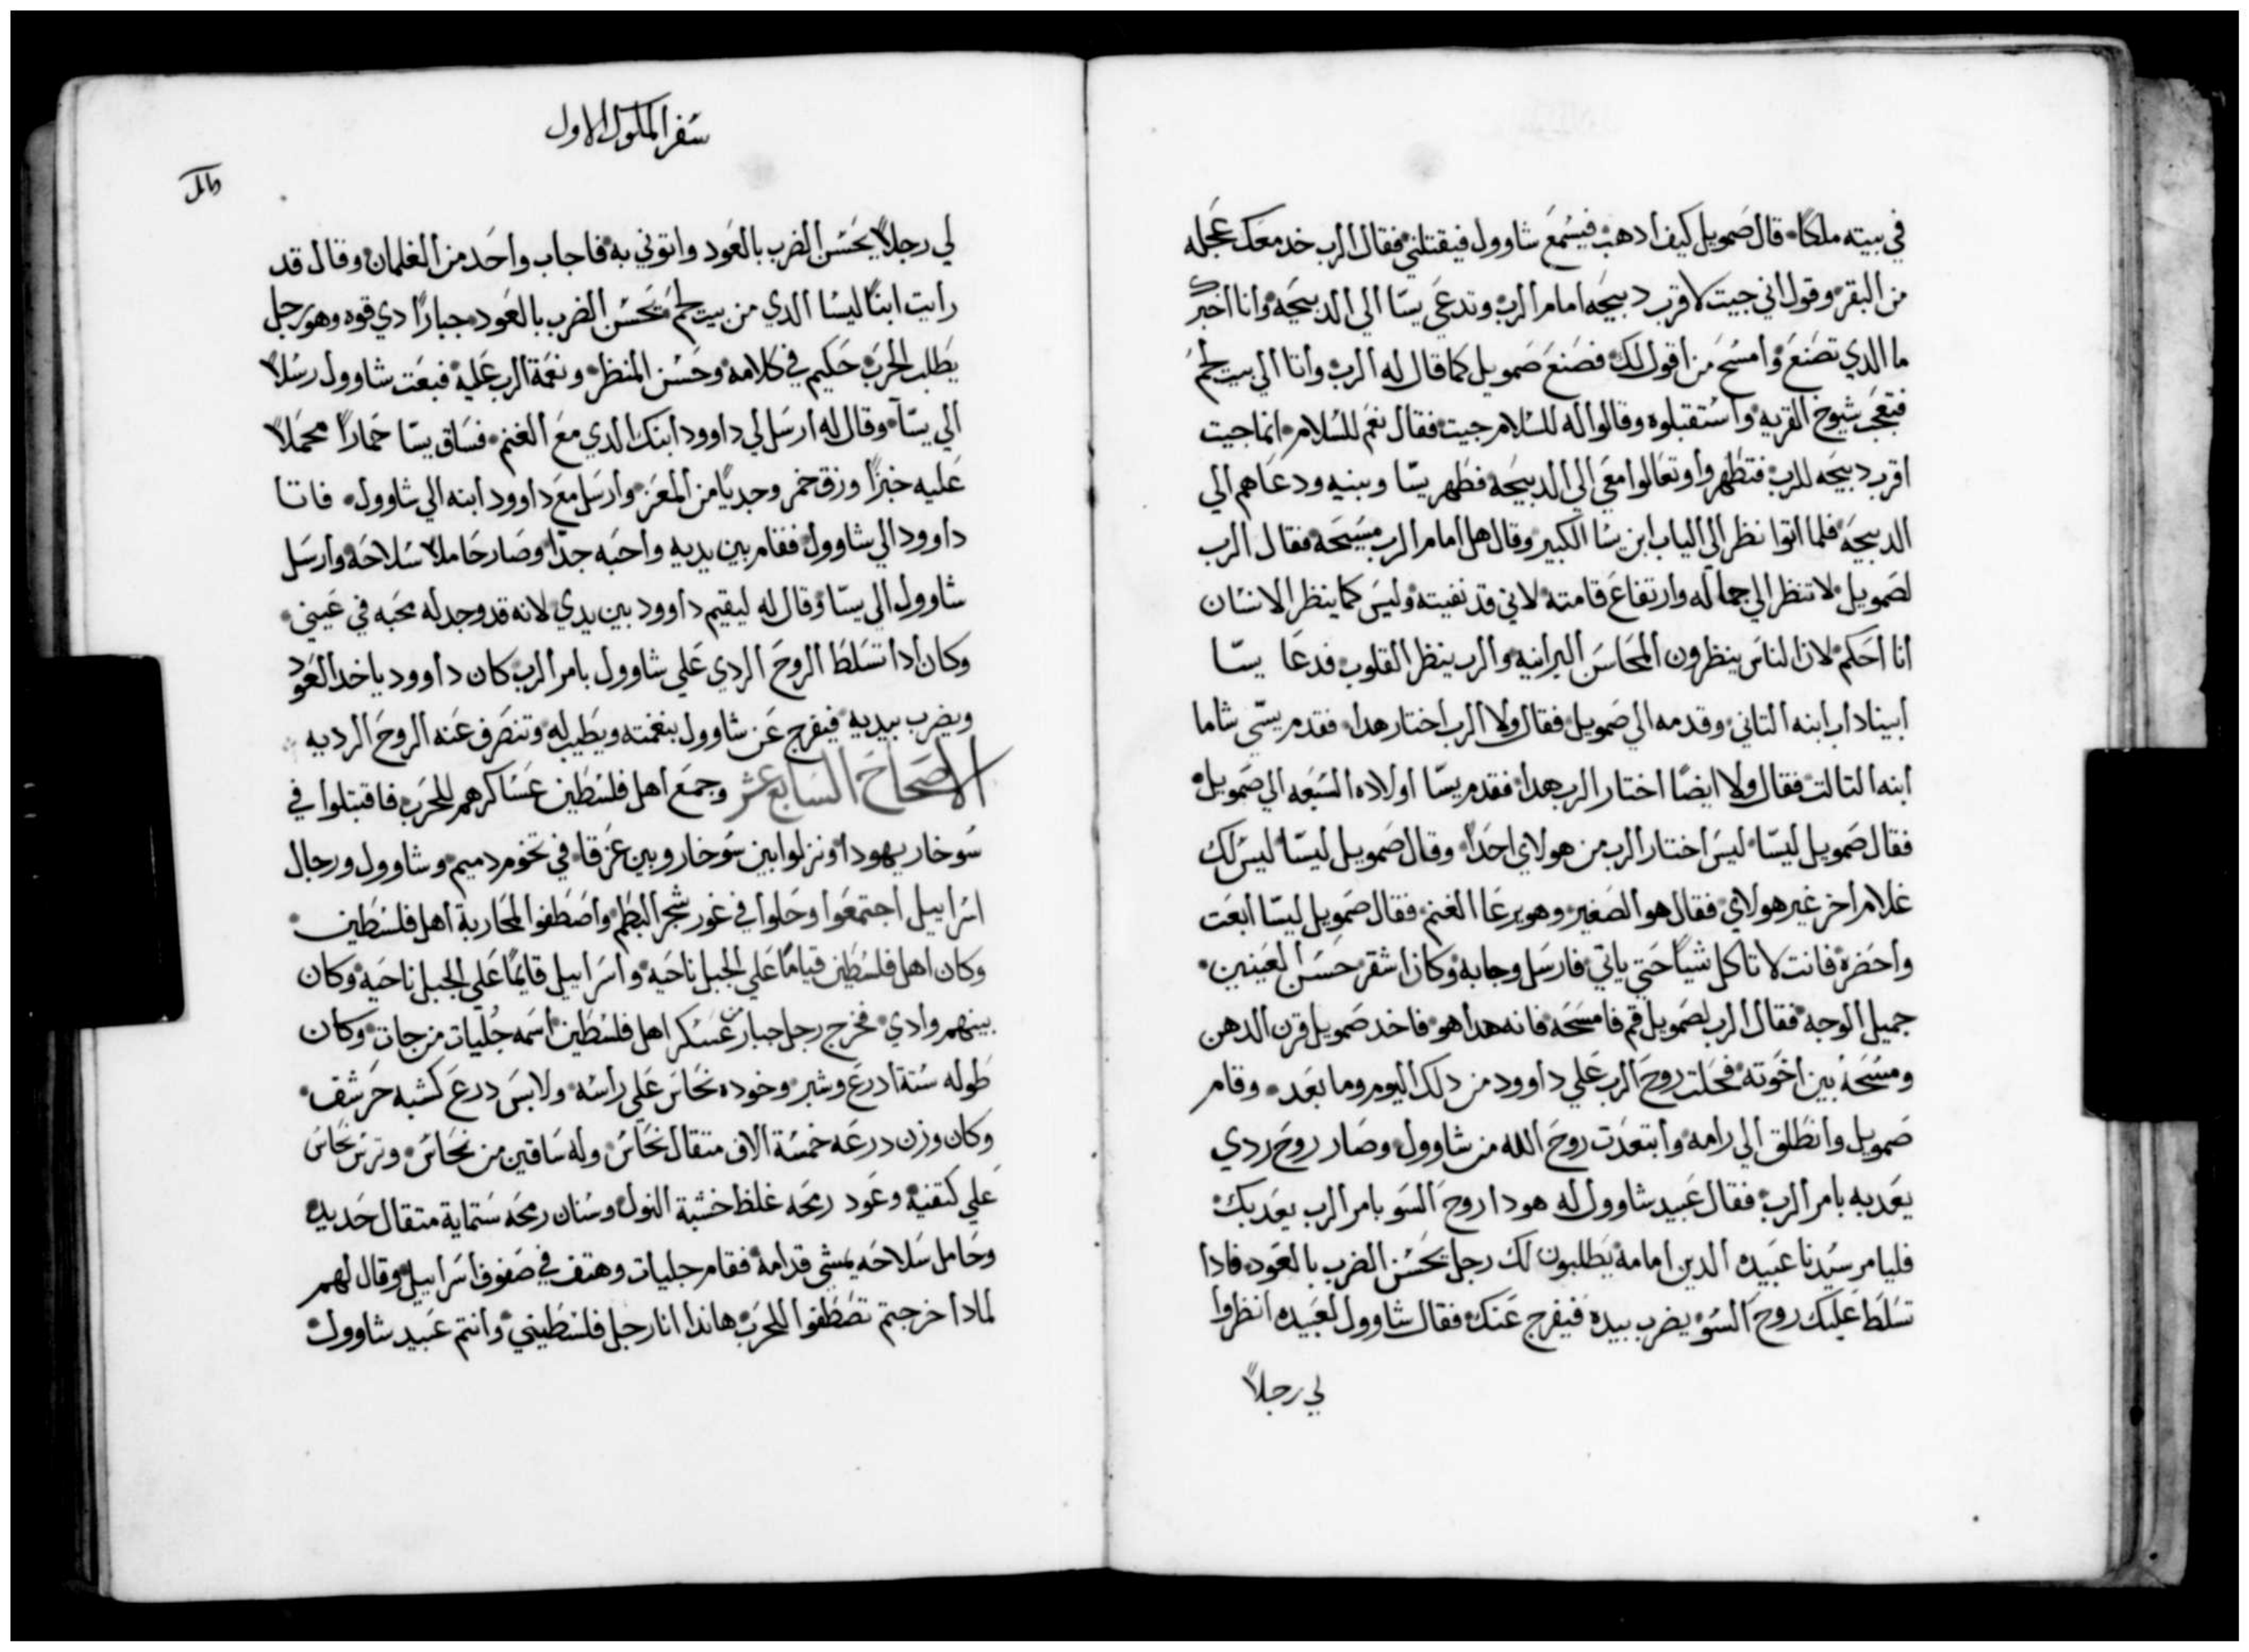 في بيته ملكًا قال صمويل كيف ادهب فيسمع شاوول فيقتلني فقال الرب خد معك عجله
من البقر وقول اني جيت لاقرب دبيحه امام الرب وتدعي يسّا الي الدبيحه وانا اخبرك
ما الدي تصنع وامسح من اقول لك فصنع صمويل كما قال له الرب واتا الي بيت لحم
فتعجب شيوخ القريه واستقبلوه وقالوا له للسلام جيت فقال نعم للسلام انما جيت
اقرب دبيحه للرب فتطهروا وتعالوا معي الي الدبيحه فطهر يسّا وبنيه ودعاهم الي
الدبيحه فلما اتوا نظر الي الياب ابن يسا الكبير وقال هل امام الرب مسيحه فقال الرب
لصمويل لا تنظر الي جماله وارتفاع قامته لاني قد نفيته وليس كما ينظر الانسان
انا احكم لان الناس ينظرون المحاسن البرانيه والرب ينظر القلوب فدعا يسّا
ابيناداب ابنه التاني وقدمه الي صمويل فقال ولا الرب اختار هدا فقدم يسّي شاما
ابنه التالت فقال ولا ايضًا اختار الرب هدا فقدم يسّا اولاده السبعه الي صمويل
فقال صمويل ليسّا ليس اختار الرب من هولاي احدًا وقال صمويل ليسّا ليس لك
غلام اخر غير هولاي فقال هو الصغير وهو يرعا الغنم فقال صمويل ليسّا ابعت
واحضره فانت لا تاكل شيًا حتي ياتي فارسل وجابه وكان اشقر حسن العينين
جميل الوجه فقال الرب لصمويل قم فامسحه فانه هدا هو فاخد صمويل قرن الدهن
ومسحه بين اخوته فحلت روح الرب علي داوود من دلك اليوم وما بعد وقام
صمويل وانطلق الي رامه وابتعدت روح الله من شاوول وصار روح ردي
يعدبه بامر الرب فقال عبيد شاوول له هودا روح السو بامر الرب يعدبك
فليامر سيدنا عبيده الدين امامه يطلبون لك رجل يحسن الضرب بالعود فادا
تسلط عليك روح السو يضرب بيده فيفرج عنك فقال شاوول لعبيده انظروا
لي رجلاً
سفر الملوك الاول
لي رجلاً يحسن الضرب بالعود واتوني به فاجاب واحد من الغلمان وقال قد
رايت ابنًا ليسا الدي من بيت لحم يحسن الضرب بالعود جبارًا دي قوه وهو رجل
يطلب الحرب حكيم في كلامه وحسن المنظر ونعمة الرب عليه فبعت شاوول رسلاً
الي يسّا وقال له ارسل لي داوود ابنك الدي مع الغنم فساق يسّا حمارًا محملاً
عليه خبزًا وزق خمر وجديًا من المعز وارسل مع داوود ابنه الي شاوول فاتا
داوود الي شاوول فقام بين يديه واحبه جدًا وصار حاملاً سلاحه وارسل
شاوول الي يسّا وقال له ليقيم داوود بين يدي لانه قد وجد له محبه في عيني
وكان ادا تسلط الروح الردي علي شاوول بامر الرب كان داوود ياخد العود
ويضرب بيديه فيفرج عن شاوول بنغمته ويطيب له وتنصرف عنه الروح الرديه
الاصحاح السابع عشر وجمع اهل فلسطين عساكرهم للحرب فاقبتلوا في
سوخار يهودا ونزلوا بين سوخار وبين عزقا في تخوم دميم وشاوول ورجال
اسراييل اجتمعوا وحلوا في غور شجر البطم واصطفوا لمحاربة اهل فلسطين
وكان اهل فلسطين قيامًا علي الجبل ناحيه واسراييل قايمًا علي الجبل ناحيه وكان
بينهم وادي فخرج رجل جبار من عسكر اهل فلسطين اسمه جليات من جات وكان
طوله ستة ادرع وشبر وخوده نحاس علي راسه ولابس درع كشبه حرشف
وكان وزن درعه خمسة الاف متقال نحاس وله ساقين من نحاس وترس نحاس
علي كتفيه وعود رمحه غلظ خشبة النول وسنان رمحه ستماية متقال حديد
وحامل سلاحه يمشي قدامه فقام جليات وهتف في صفوف اسراييل وقال لهم
لمادا خرجتم تصطفوا للحرب هاندا انا رجل فلسطيني وانتم عبيد شاوول